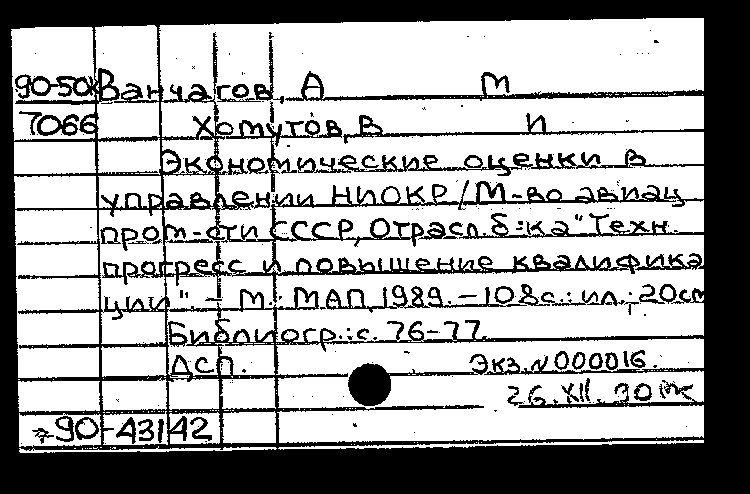 90-50к Ванчагов, А М
7066 Хомутов, В И
Экономические оценки в
управлении НИОКР / М-во авиац
пром-сти СССР, Отрасл. б-ка "Техн.
прогресс и повышение квалифика
ции". - М.: МАП, 1989. - 108с.: ил.; 20см
Библиогр.: с. 76-77.
ДСП. Экз. № 000016.
26.XII.90
90-43142